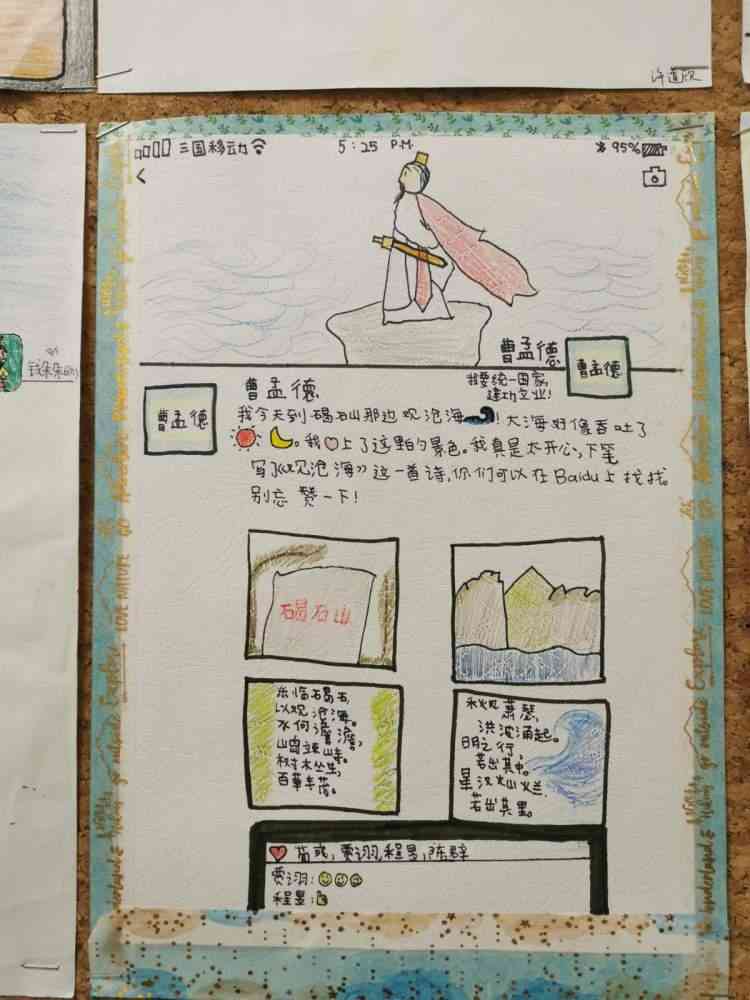 许道欣
三国移动 5:25 P.M. 95%
<
曹孟德
曹孟德
我要统一国家,
建功立业!
曹孟德
曹孟德
我今天到碣石山那边观沧海! 大海好像吞吐了
。我上了这里的景色。我真是太开心,下笔
写了《观沧海》这一首诗,你们可以在Baidu上找找。
别忘赞一下!
碣石山
东临碣石,
以观沧海。
水何澹澹,
山岛竦峙。
树木丛生,
百草丰茂。
秋风萧瑟,
洪波涌起。
日月之行,
若出其中。
星汉灿烂,
若出其里。
荀彧,贾诩,程昱,陈群
贾诩:
程昱:
Explore
LOVE NATURE
go outside
Explore
LOVE NATURE
go outside